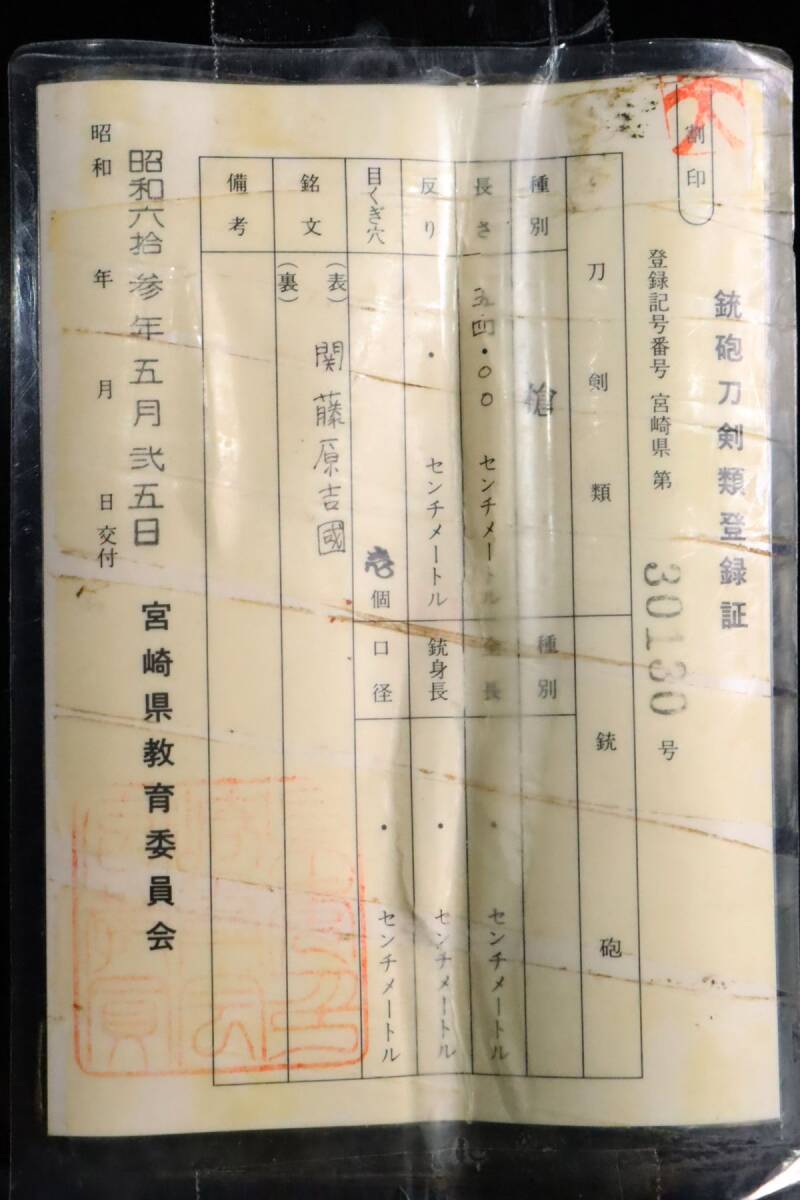 銃砲刀剣類登録証
割印
登録記号番号 宮崎県 第 30130 号
刀剣類
銃砲
種別 槍
種別
長さ 五四・〇〇 センチメートル
全長 ・ センチメートル
反り ・ センチメートル
銃身長 ・ センチメートル
目くぎ穴 壱 個
口径 ・ センチメートル
銘文 (表) 関藤原吉國
(裏)
備考
昭和六拾参年五月弐五日 宮崎県教育委員会
昭和 年 月 日交付